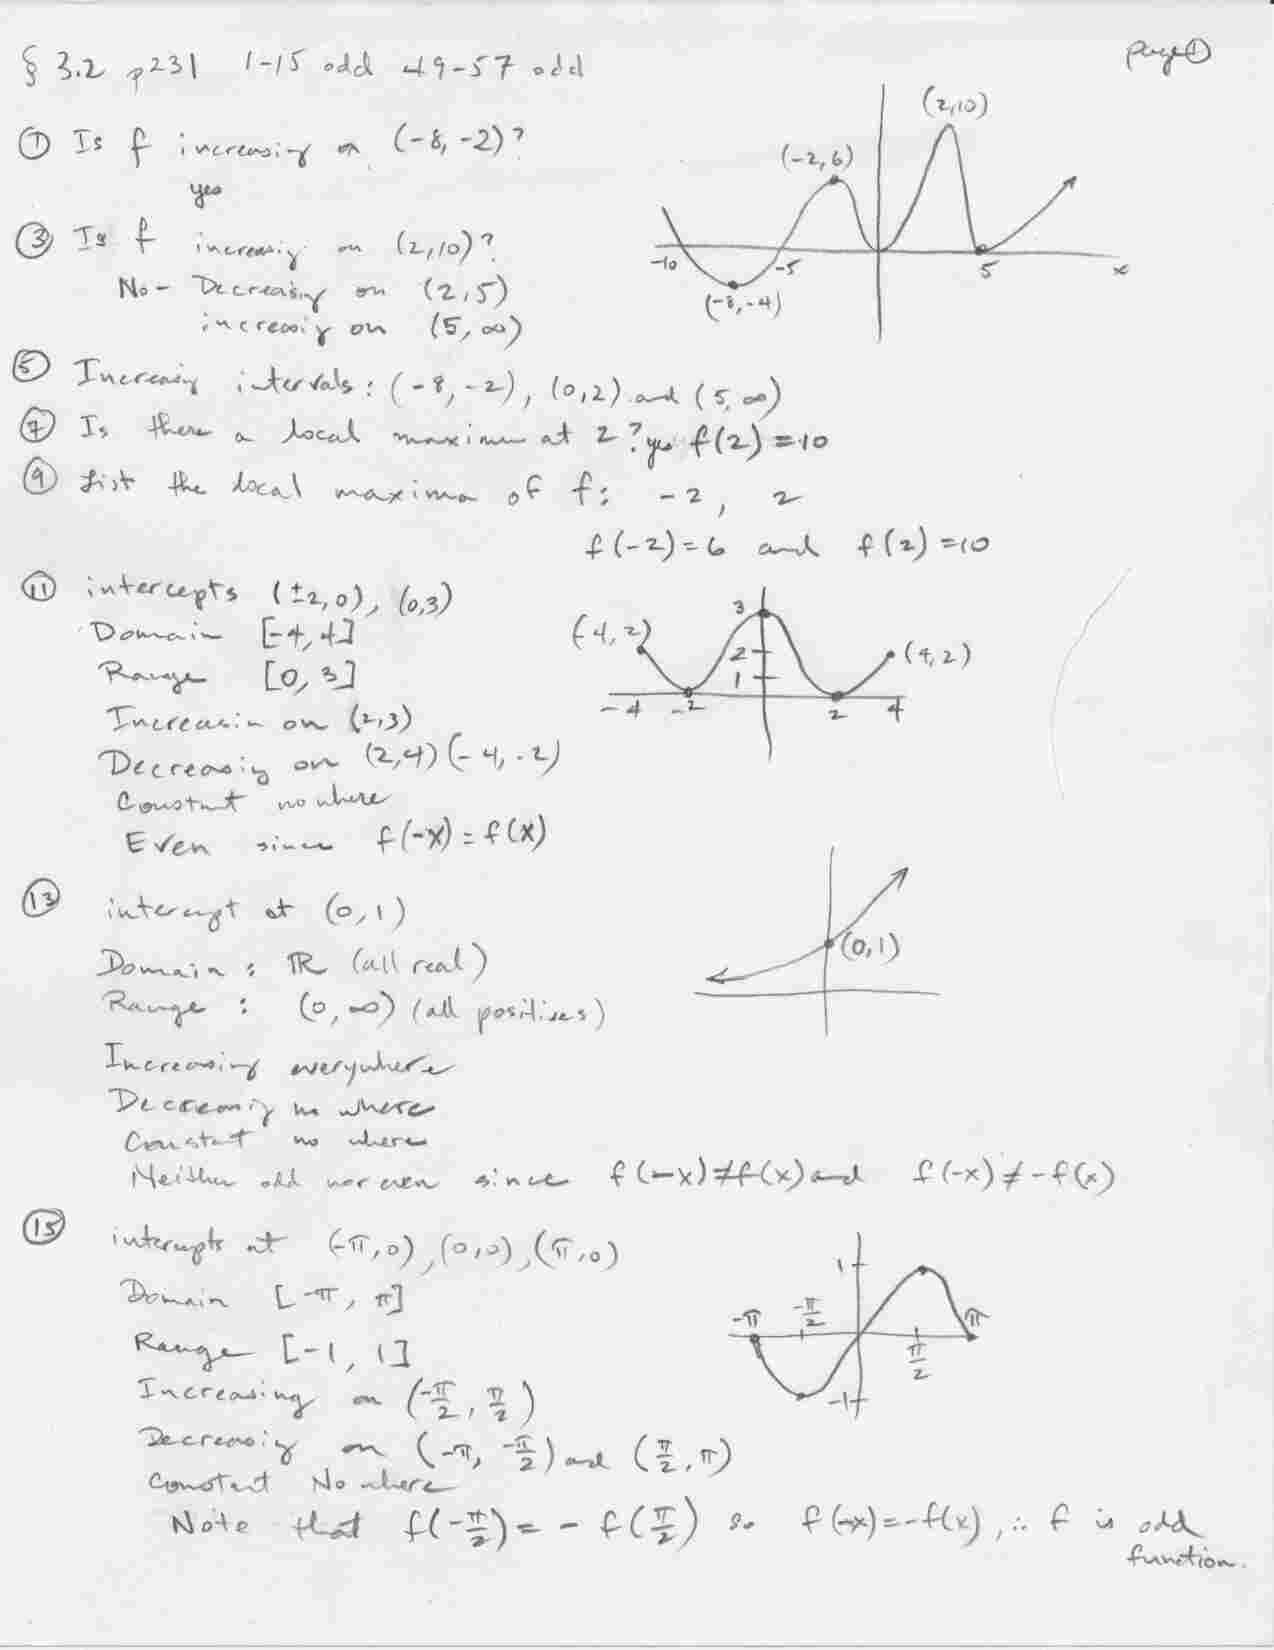 § 3.2 p231 1-15 odd 49-57 odd
page ①
① Is f increasing on (-8, -2)?
yes
③ Is f increasing on (2,10)?
No - Decreasing on (2,5)
increasing on (5, ∞)
(-2,6)
(2,10)
-10
-5
5
x
(-8,-4)
⑤ Increasing intervals: (-8, -2), (0,2) and (5, ∞)
⑦ Is there a local maximum at 2? yes f(2) = 10
⑨ List the local maxima of f: -2, 2
f(-2)=6 and f(2)=10
⑪ intercepts (±2,0), (0,3)
Domain [-4, 4]
Range [0, 3]
Increasin on (2,3)
Decreasing on (2,4) (-4, -2)
Constant nowhere
Even since f(-x) = f(x)
(-4,2)
3
2
1
(4,2)
-4
-2
2
4
⑬ intercept at (0,1)
Domain : ℝ (all real)
Range : (0, ∞) (all positives)
Increasing everywhere
Decreasing no where
Constant no where
Neither odd nor even since f(-x) ≠ f(x) and f(-x) ≠ -f(x)
(0,1)
⑮ intercepts at (-π,0), (0,0), (π,0)
Domain [-π, π]
Range [-1, 1]
Increasing on (-π/2, π/2)
Decreasing on (-π, -π/2) and (π/2, π)
Constant No where
Note that f(-π/2) = - f(π/2) so f(-x) = -f(x), ∴ f is odd
function.
1
-π
-π/2
π
π/2
-1